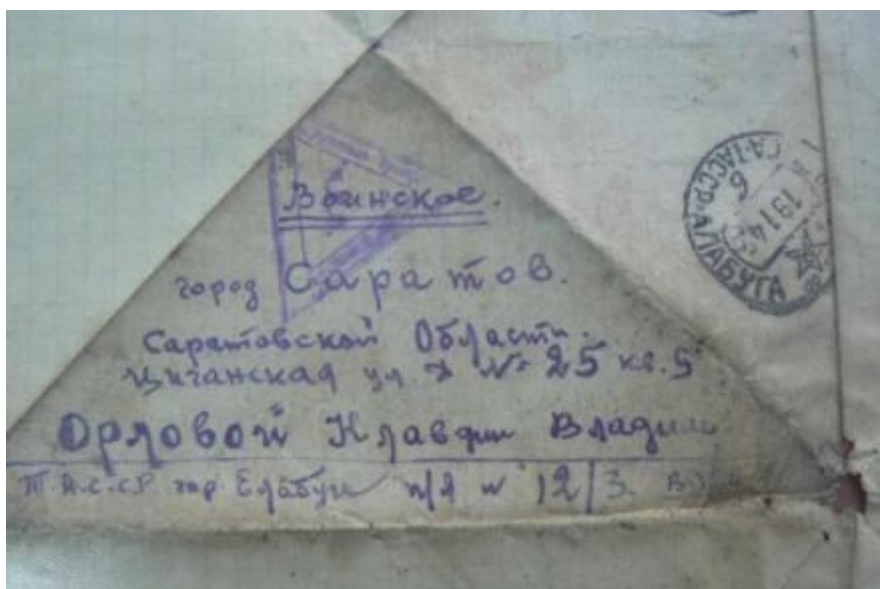 Воинское.
город Саратов.
Саратовской Области.
Циганская ул. Д № 25 кв. 5
Орловой Клавдии
Т.А.С.С.Р гор. Елабуги п/я № 12/3.
ТАССР·АЛАБУГА
6
1914